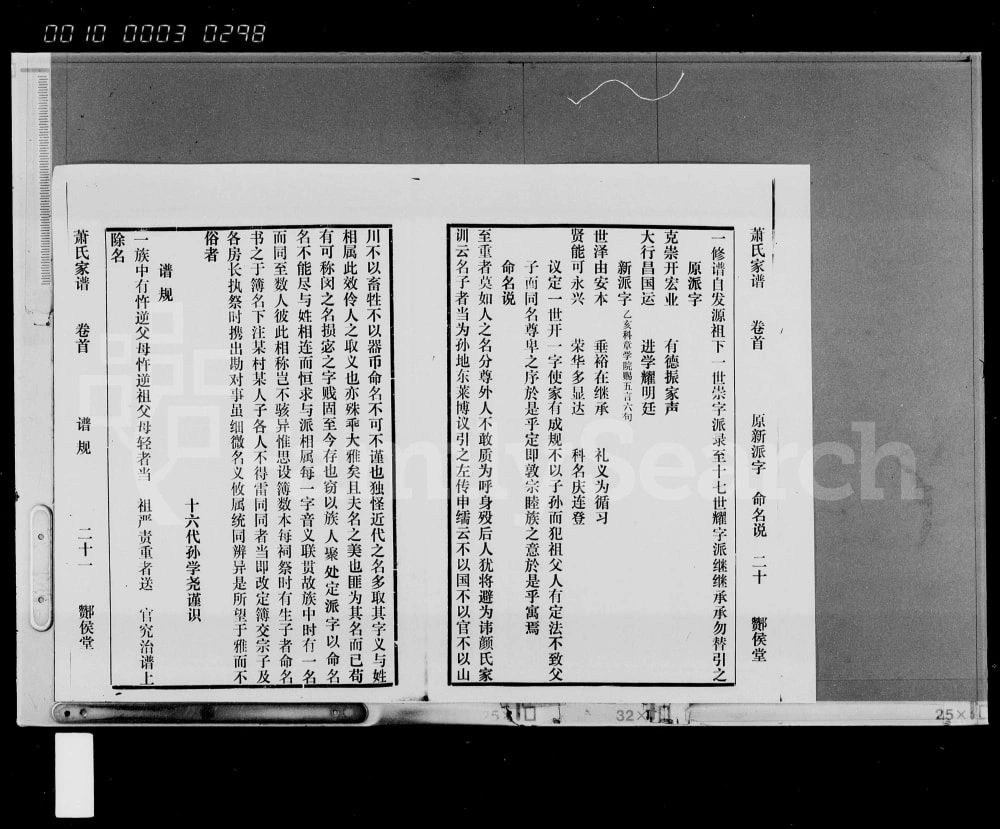 0010 0003 0298
萧氏家谱 卷首 原新派字 命名说 二十 酂侯堂
一修谱自发源祖下一世崇字派录至十七世耀字派继继承承勿替引之
原派字
克崇开宏业 有德振家声
大行昌国运 进学耀明廷
新派字 乙亥科章学院赐五言六句
世泽由安本 垂裕在继承 礼义为循习
贤能可永兴 荣华多显达 科名庆连登
议定一世开一字使家有成规不以子孙而犯祖父人有定法不致父
子而同名尊卑之序於是乎定即敦宗睦族之意於是乎寓焉
命名说
至重者莫如人之名分尊外人不敢质为呼身殁后人犹将避为讳颜氏家
训云名子者当为孙地东莱博议引之左传申繻云不以国不以官不以山
川不以畜牲不以器币命名不可不谨也独怪近代之名多取其字义与姓
相属此效伶人之取义也亦殊乖大雅矣且夫名之美也匪为其名而已苟
有可称闵之名损宓之字贱固至今存也窃以族人聚处定派字以命名
名不能尽与姓相连而恒求与派相属每一字音义联贯故族中时有一名
而同至数人彼此相称岂不骇异惟思设簿数本每祠祭时有生子者命名
书之于簿名下注某村某人子各人不得雷同同者当即改定簿交宗子及
各房长执祭时携出勘对事虽细微名义攸属统同辨异是所望于雅而不
俗者
十六代孙学尧谨识
谱规
一族中有忤逆父母忤逆祖父母轻者当 祖严责重者送 官究治谱上
除名
萧氏家谱 卷首 谱规 二十一 酂侯堂
32×
25×